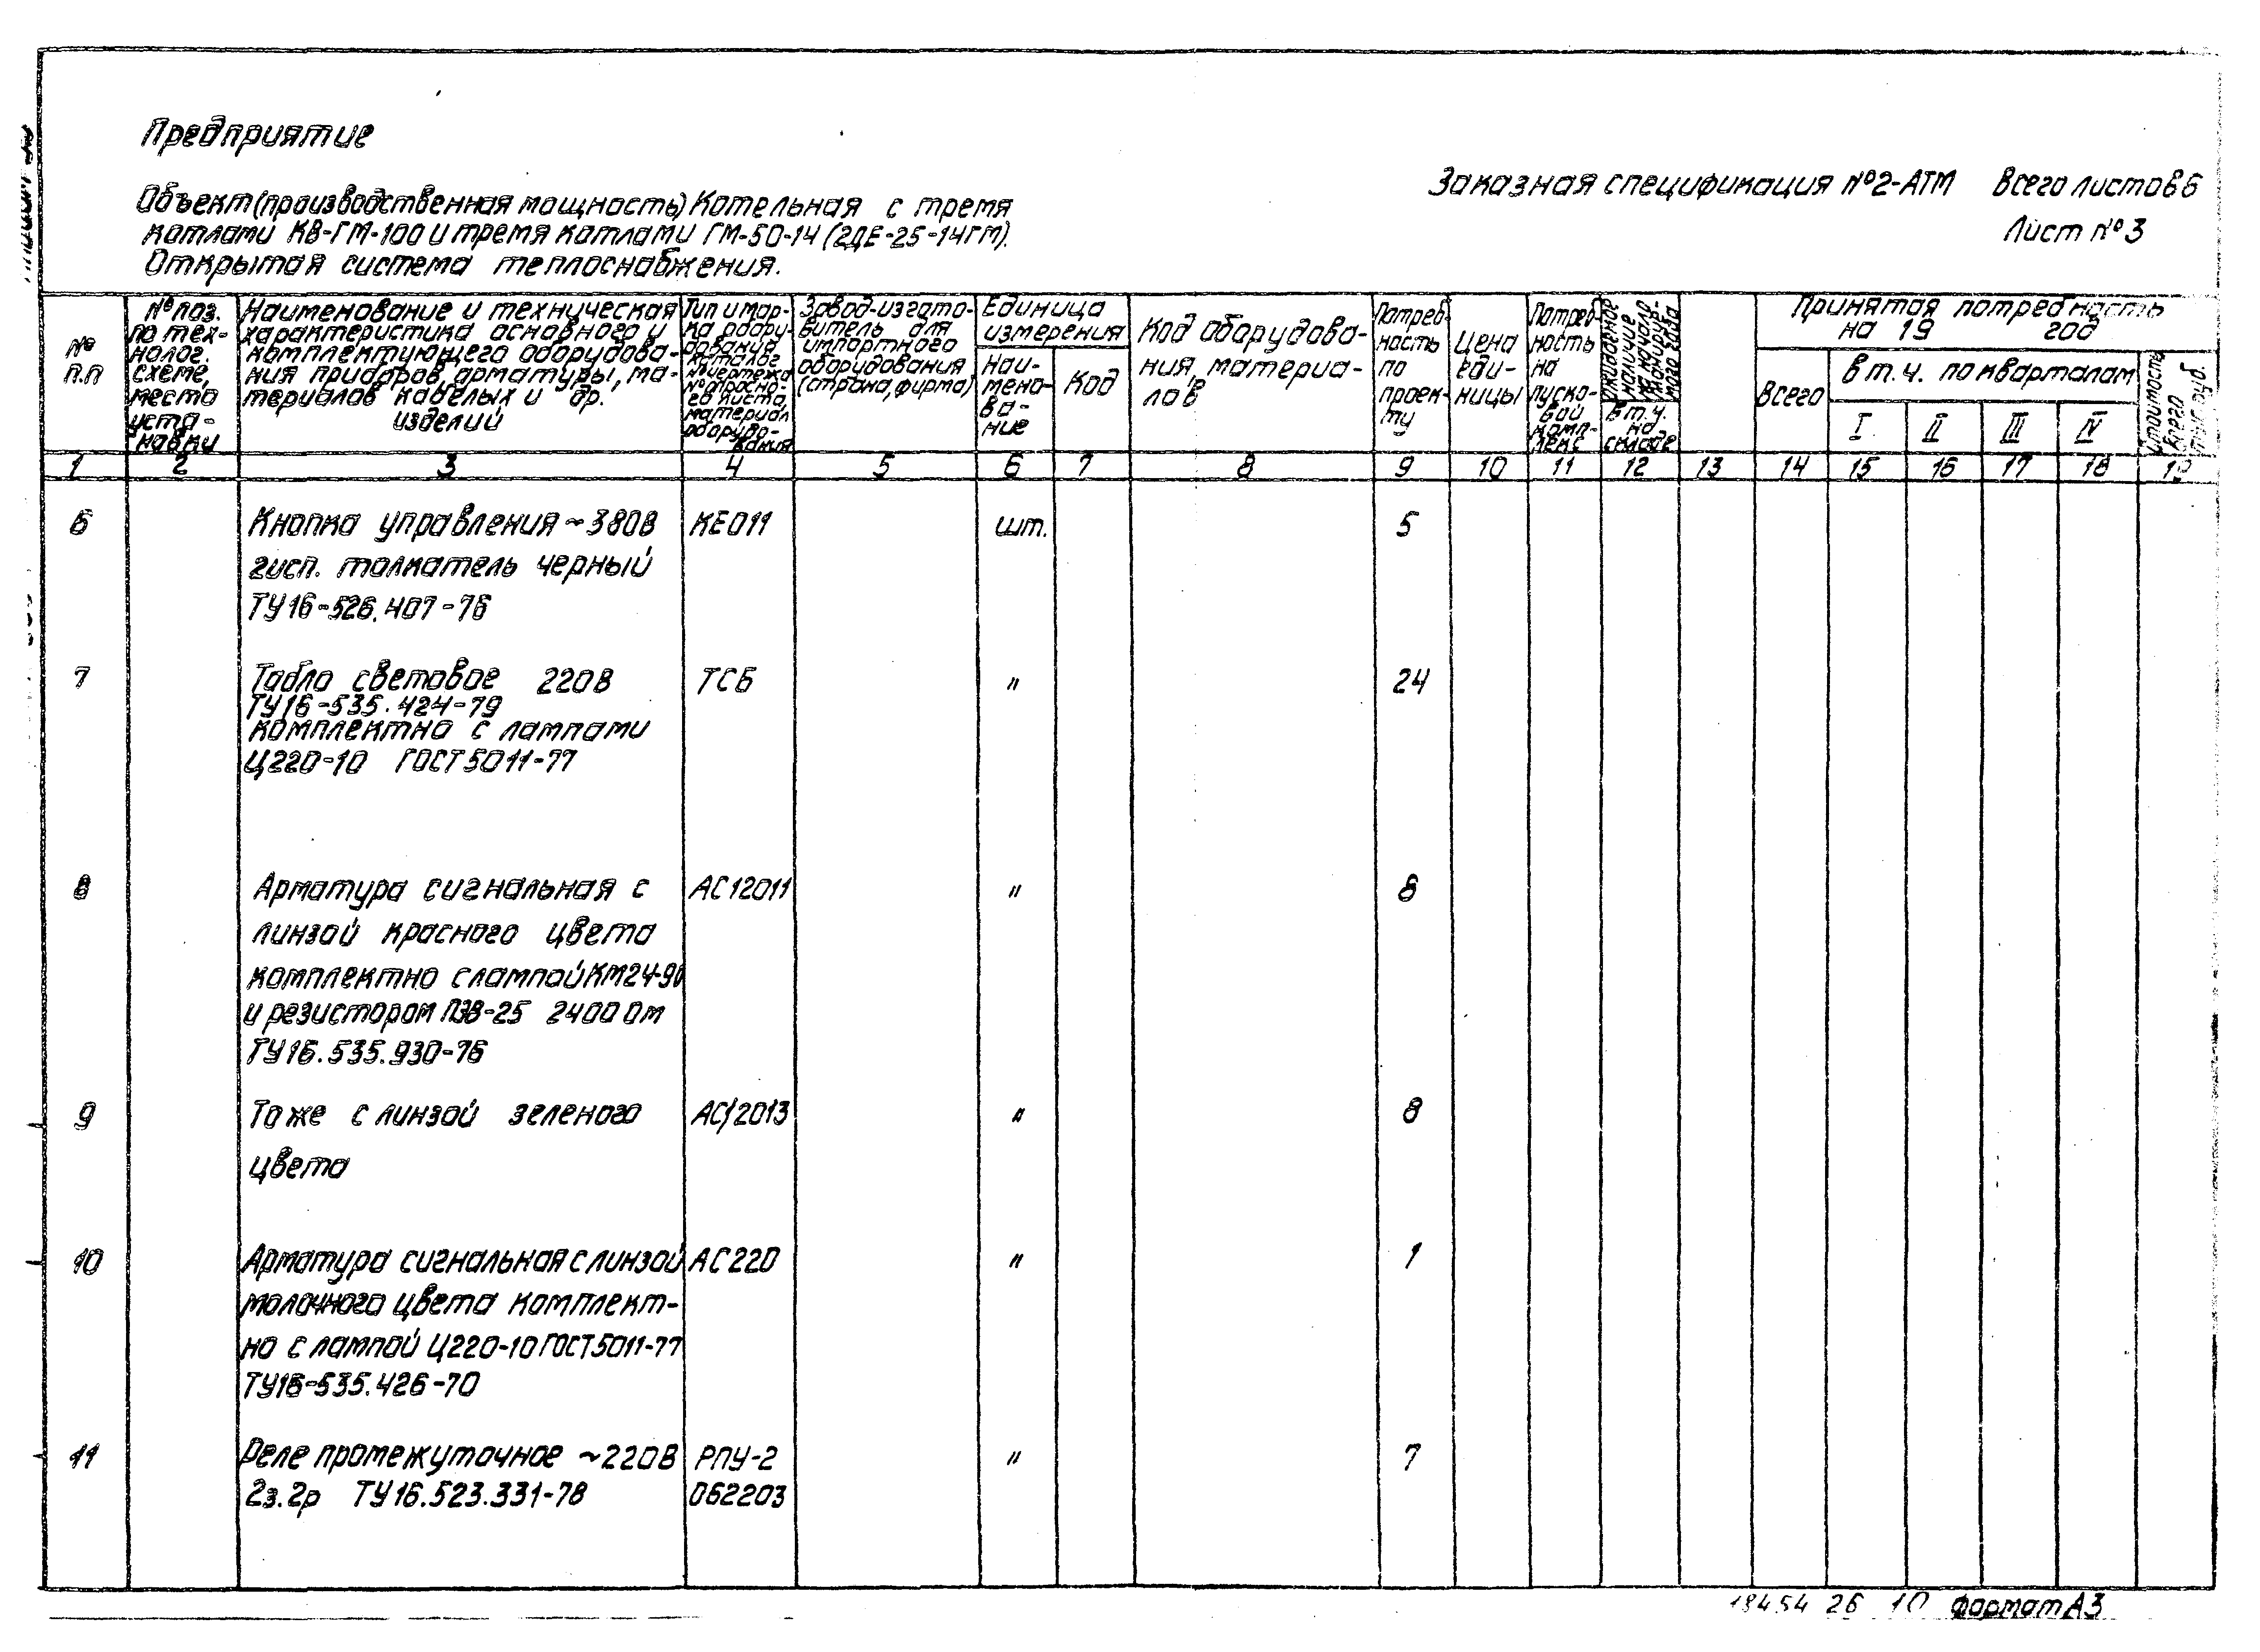 Предприятие
Заказная спецификация №2-АТМ Всего листов 6
Лист №3
Объект (производственная мощность) Котельная с тремя
котлами КВ-ГМ-100 и тремя котлами ГМ-50-14 (2ДЕ-25-14ГМ).
Открытая система теплоснабжения.
№
п.п
№ поз.
по тех-
нолог.
схеме,
место
уста-
новки
Наименование и техническая
характеристика основного и
комплектующего оборудова-
ния приборов, арматуры, ма-
териалов кабелых и др.
изделий
Тип и мар-
ка обору-
дования
каталог
№чертежа
№опросно-
го листа,
материал
оборудо-
вания
Завод-изгото-
витель для
импортного
оборудования
(страна, фирма)
Единица
измерения
Наи-
мено-
ва-
ние
Код
Код оборудова-
ния, материа-
лов
Потреб-
ность
по
проек-
ту
Цена
еди-
ницы
Потреб-
ность
на
пуско-
вой
комп-
лекс
Ожидаемое
наличие
на начало
планируе-
мого года
в т.ч.
на
складе
Принятая потребность
на 19 год
Всего
в т.ч. по кварталам
I II III IV
Стоимость
всего
тыс. руб.
1 2 3 4 5 6 7 8 9 10 11 12 13 14 15 16 17 18 19
6 Кнопка управления ~380В КЕ011 шт. 5
2исп. толкатель черный
ТУ16-526.407-76
7 Табло световое 220В ТСБ " 24
ТУ16-535.424-79
комплектно с лампами
Ц220-10 ГОСТ5011-77
8 Арматура сигнальная с АС12011 " 8
линзой красного цвета
комплектно с лампой КМ24-90
и резистором ПЭВ-25 2400 Ом
ТУ16.535.930-76
9 То же с линзой зеленого АС12013 " 8
цвета
10 Арматура сигнальная с линзой АС220 " 1
молочного цвета комплект-
но с лампой Ц220-10 ГОСТ5011-77
ТУ16-535.426-70
11 Реле промежуточное ~220В РПУ-2 " 7
2з.2р ТУ16.523.331-78 062203
18454 26 10 Формат А3